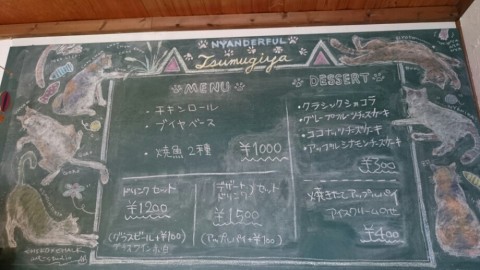 NYANDERFUL
Tsumugiya
MENU
・チキンロール
・ブイヤベース
・焼魚2種 ¥1000
ドリンクセット
¥1200
(グラスビール+¥100)
デザート
ドリンク セット
¥1500
(アップルパイ+¥100)
DESSERT
・クラシックショコラ
・グレープフルーツチーズケーキ
・ココナッツチーズケーキ
・アップルシナモンチーズケーキ
¥500
焼きたてアップルパイ
アイスクリームのせ
¥400